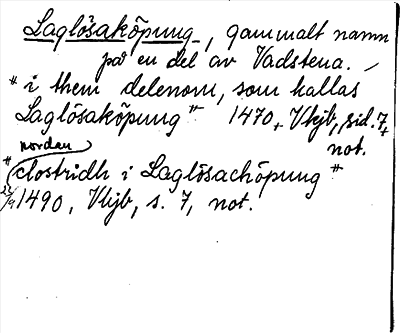 Laglösaköpung, gammalt namn
på en del av Vadstena.
"i them delenom, som kallas
Laglösaköpung" 1470, Vkjb, sid. 7,
not.
nordan
"clostridh i Laglösachöpung"
22/9 1490, Vkjb, s. 7, not.